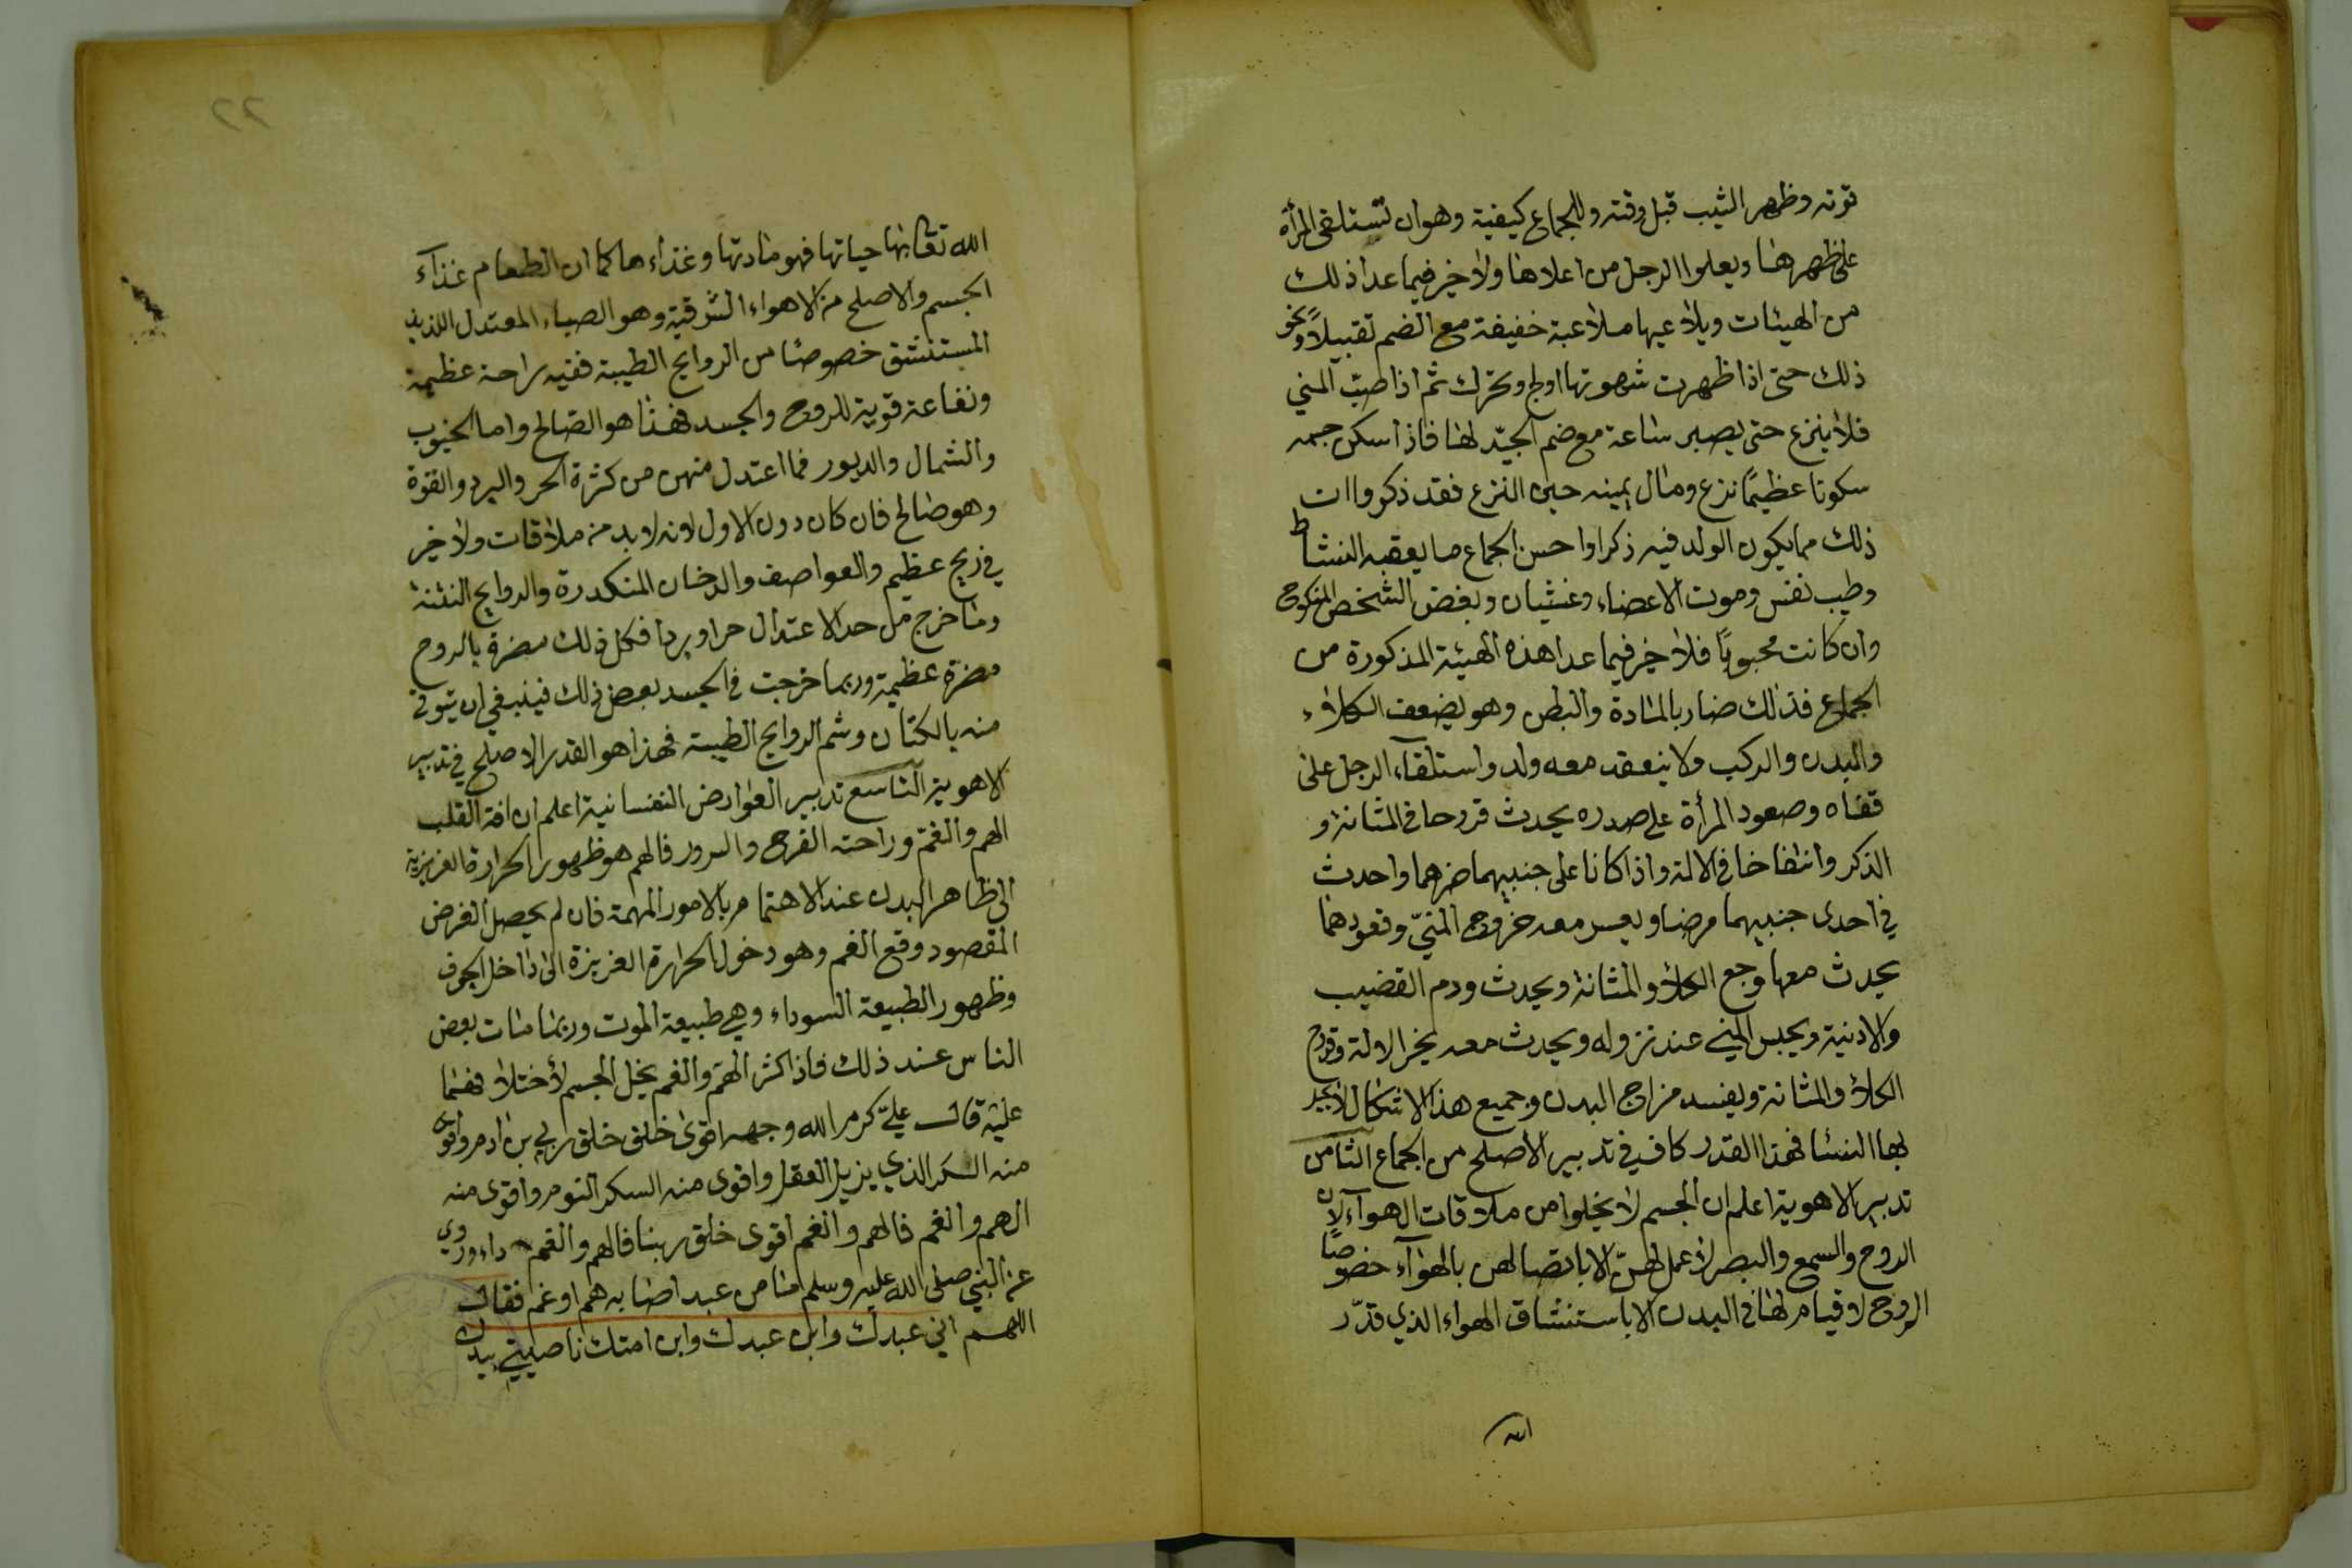 قوته وظهر الشيب قبل وقته وللجماع كيفية وهو ان تستلقى المرأة
على ظهرها ويعلوا الرجل من اعلاها ولا خير فيما عدا ذلك
من الهيئات ويلاعبها ملاعبة خفيفة مع الضم تقبيلاً ونحو
ذلك حتى اذا ظهرت شهوتها اولج وتحرك ثم اذا صب المني
فلا ينزع حتى يصبر ساعة مع ضم الجيّد لها فاذا سكن جسمه
سكونا عظيمًا نزع ومال يمينه حين النزع فقد ذكروا ان
ذلك مما يكون الولد فيه ذكرا واحسن الجماع ما يعقبه النشاط
وطيب نفس وموت الاعضاء وغشيان وبغض الشخص المنكوح
وان كانت محبوبًا فلا خير فيما عدا هذه الهيئة المذكورة من
الجماع فذلك ضار بالمادة والبطن وهو يضعف الكلاء
والبدن والركب ولا ينعقد معه ولد واستلقآء الرجل على
قفاه وصعود المرأة على صدره يحدث قروحا في المثانة و
الذكر وانتفاخا في الالة واذا كانا على جنبيهما ضرهما واحدث
في احدى جنبيهما مرضا ويعسر معه خروج المنيّ وقعودهما
يحدث معها وجع الكلا والمثانة ويحدث ودم القضيب
والادنية ويحبس المني عند نزوله ويحدث معه بخر الالة وقروح
الكلا والمثانة ويفسد مزاج البدن وجميع هذا الاشكال لا تجبر
بها النسا فهذا القدر كاف في تدبير الاصلح من الجماع الثامن
تدبير الاهوية اعلم ان الجسم لا يخلوا من ملاقات الهوآء لان
الروح والسمع والبصر لا عمل لهنّ الا باتصالهن بالهوآء خصوصًا
الروح لا قيام لها في البدن الا باستنشاق الهواء الذي قدّر
الله
٢٢
الله تعا بها حياتها فهو مادتها وغذاءها كما ان الطعام غذآء
الجسم والاصلح من الاهواء الشرقية وهو الصباء المعتدل اللذيذ
المستنشق خصوصًا من الروايح الطيبة ففيه راحة عظيمة
ونفاعة قوية للروح والجسد فهذا هو الصالح واما الجنوب
والشمال والدبور فما اعتدل منهن من كثرة الحر والبرد والقوة
وهو صالح فان كان دون الاول لانه لا بد من ملاقات ولا خير
في ريح عظيم والعواصف والدخان المنكدرة والروايح النتنة
وما خرج من حد الاعتدال حرا وبردا فكل ذلك مضرة بالروح
مضرة عظيمة وربما خرجت في الجسد بعض ذلك فينبغي ان يتوقى
منه بالكتان وشم الروايح الطيبة فهذا هو القدر الاصلح في تدبير
الاهوية التاسع تدبير العوارض النفسانية اعلم ان افة القلب
الهم والغمّ وراحته الفرح والسرور فالهم هو ظهور الحرارة الغريزية
الى ظاهر البدن عند الاهتمام بالامور المهمة فان لم يحصل الغرض
المقصود وقع الغم وهو دخول الحرارة الغريزة الى داخل الجوف
وظهور الطبيعة السوداء وهي طبيعة الموت وربما مات بعض
الناس عند ذلك فاذا كثر الهمّ والغم يخل الجسم لأختلاقهما
عليه قال عليّ كرم الله وجهه اقوى خلق خلق ربي بن ادم واقوى
منه السكر الذي يزيل العقل واقوى منه السكر النوم واقوى منه
الهم والغم فالهم والغم اقوى خلق ربنا فالهم والغم داء وروي
عن النبي صلى الله عليه وسلم ما من عبد اصابه هم او غم فقال
اللهم اني عبدك وابن عبدك وابن امتك ناصيتي بيدك